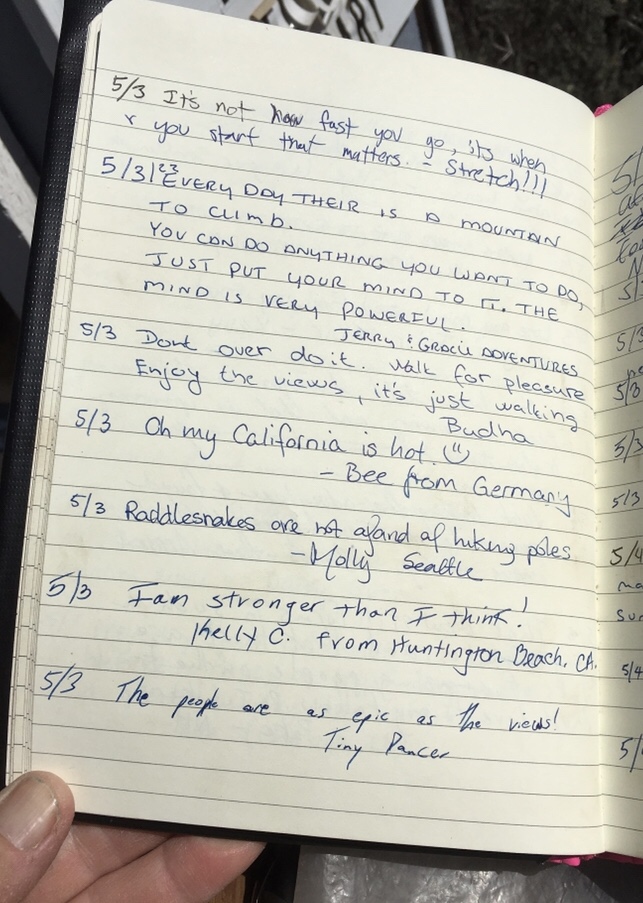 5/3 It's not how fast you go, it's when
r you start that matters. - Stretch!!!
5/3/23 EVERY DAY THEIR IS A MOUNTAIN
TO CLIMB.
YOU CAN DO ANYTHING YOU WANT TO DO,
JUST PUT YOUR MIND TO IT. THE
MIND IS VERY POWERFUL.
JERRY & GRACIE ADVENTURES
5/3 Dont over do it. Walk for pleasure
Enjoy the views, it's just walking
Budha
5/3 Oh my California is hot ☺
- Bee from Germany
5/3 Raddlesnakes are not afand af hiking poles
- Molly Seattle
5/3 I am stronger than I think!
Kelly C. from Huntington Beach, CA.
5/3 The people are as epic as the views!
Tiny Dancer
5/3
5/3
5/3
5/4
5/4